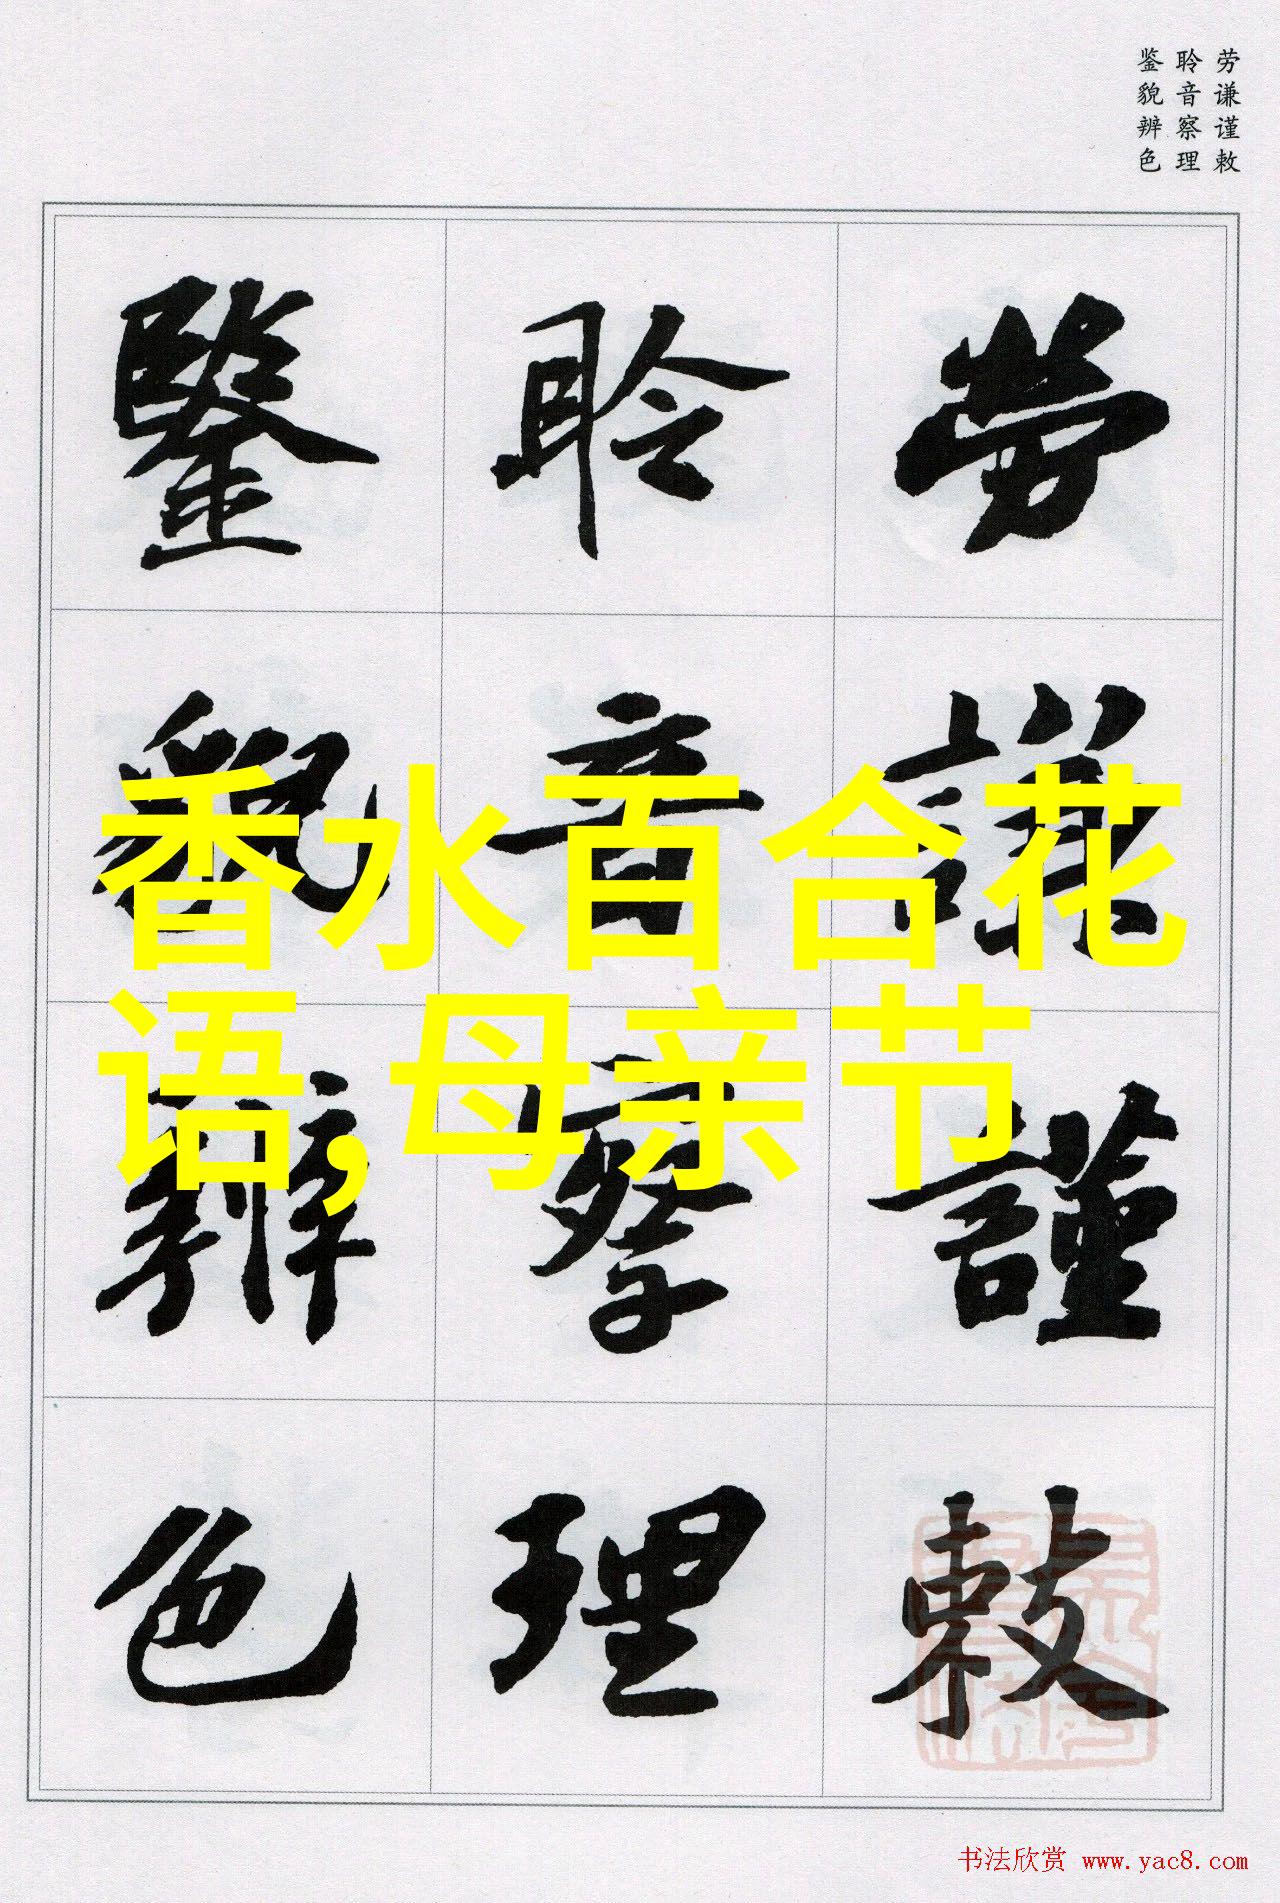 劳谦谨敕
聆音察理
鉴貌辨色
勞謙謹敕
聆音察理
鑒貌辨色
香水百合花
语,母亲节
书法欣赏 www.yac8.com